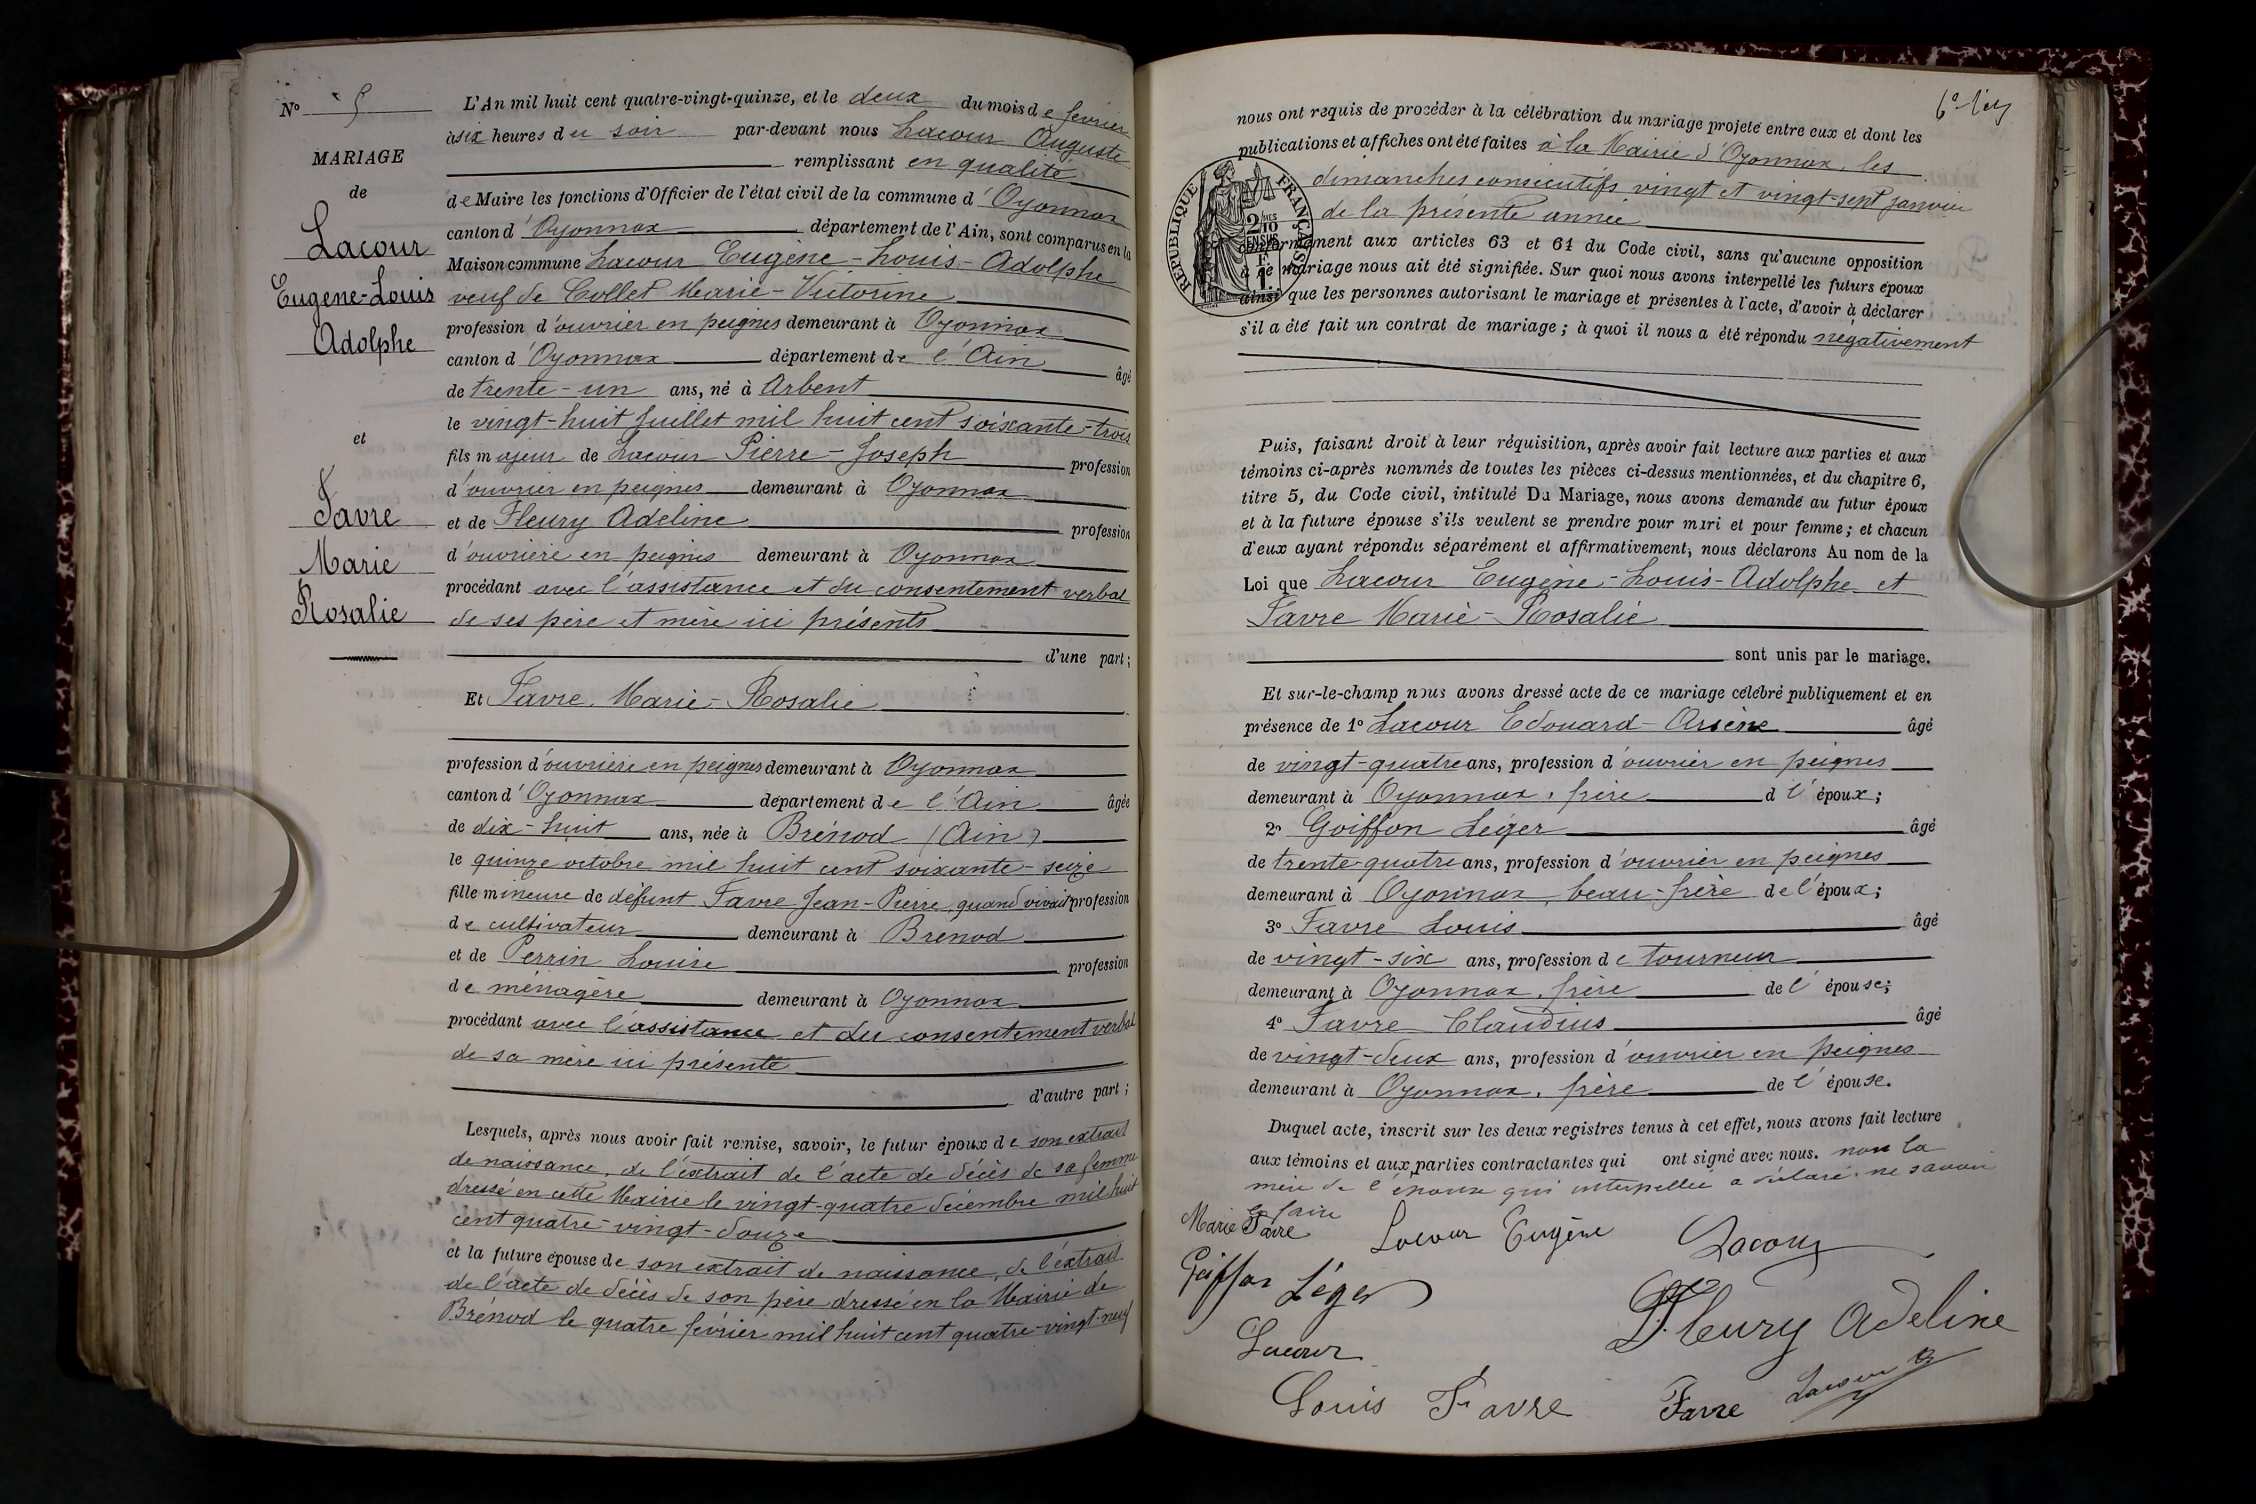 N° 5
MARIAGE
de
Lacour
Eugène-Louis
Adolphe
et
Favre
Marie
Rosalie
L'An mil huit cent quatre-vingt-quinze, et le deux du mois de février
à six heures du soir par-devant nous Lacour Auguste
remplissant en qualité
de Maire les fonctions d'Officier de l'état civil de la commune d'Oyonnax
canton d'Oyonnax département de l'Ain, sont comparus en la
Maison commune Lacour Eugène-Louis-Adolphe
veuf de Collet Marie-Victorine
profession d'ouvrier en peignes demeurant à Oyonnax
canton d'Oyonnax département de l'Ain âgé
de trente-un ans, né à Arbent
le vingt-huit Juillet mil huit cent soixante-trois
fils majeur de Lacour Pierre-Joseph profession
d'ouvrier en peignes demeurant à Oyonnax
et de Fleury Adeline profession
d'ouvrière en peignes demeurant à Oyonnax
procédant avec l'assistance et du consentement verbal
de ses père et mère ici présents
d'une part;
Et Favre Marie-Rosalie
profession d'ouvrière en peignes demeurant à Oyonnax
canton d'Oyonnax département de l'Ain âgée
de dix-huit ans, née à Brénod (Ain)
le quinze octobre mil huit cent soixante-seize
fille mineure de défunt Favre Jean-Pierre, quand vivait profession
de cultivateur demeurant à Brénod
et de Perrin Louise profession
de ménagère demeurant à Oyonnax
procédant avec l'assistance et du consentement verbal
de sa mère ici présente
d'autre part;
Lesquels, après nous avoir fait remise, savoir, le futur époux de son extrait
de naissance, de l'extrait de l'acte de décès de sa femme
dressé en cette Mairie le vingt-quatre décembre mil huit
cent quatre-vingt-douze
et la future épouse de son extrait de naissance, de l'extrait
de l'acte de décès de son père dressé en la Mairie de
Brénod le quatre février mil huit cent quatre-vingt-neuf
nous ont requis de procéder à la célébration du mariage projeté entre eux et dont les
publications et affiches ont été faites à la Mairie d'Oyonnax, les
dimanches consécutifs vingt et vingt-sept janvier
de la présente année
conformément aux articles 63 et 64 du Code civil, sans qu'aucune opposition
à ce mariage nous ait été signifiée. Sur quoi nous avons interpellé les futurs époux
ainsi que les personnes autorisant le mariage et présentes à l'acte, d'avoir à déclarer
s'il a été fait un contrat de mariage; à quoi il nous a été répondu négativement
RÉPUBLIQUE FRANÇAISE
2/10
EN SUS
Puis, faisant droit à leur réquisition, après avoir fait lecture aux parties et aux
témoins ci-après nommés de toutes les pièces ci-dessus mentionnées, et du chapitre 6,
titre 5, du Code civil, intitulé Du Mariage, nous avons demandé au futur époux
et à la future épouse s'ils veulent se prendre pour mari et pour femme; et chacun
d'eux ayant répondu séparément et affirmativement, nous déclarons Au nom de la
Loi que Lacour Eugène-Louis-Adolphe et
Favre Marie-Rosalie
sont unis par le mariage.
Et sur-le-champ nous avons dressé acte de ce mariage célébré publiquement et en
présence de 1° Lacour Edouard-Arsène âgé
de vingt-quatre ans, profession d'ouvrier en peignes
demeurant à Oyonnax, frère d l'époux;
2° Goiffon Léger âgé
de trente-quatre ans, profession d'ouvrier en peignes
demeurant à Oyonnax, beau-frère de l'époux;
3° Favre Louis âgé
de vingt-six ans, profession de tourneur
demeurant à Oyonnax, frère de l'épouse;
4° Favre Claudius âgé
de vingt-deux ans, profession d'ouvrier en peignes
demeurant à Oyonnax, frère de l'épouse.
Duquel acte, inscrit sur les deux registres tenus à cet effet, nous avons fait lecture
aux témoins et aux parties contractantes qui ont signé avec nous. non la
mère de l'épouse qui interpellée a déclaré ne savoir
le faire
Marie Favre Lacour Eugène Lacour
Goiffon Léger
Fleury Adeline
Lacour
Louis Favre Favre Lacour